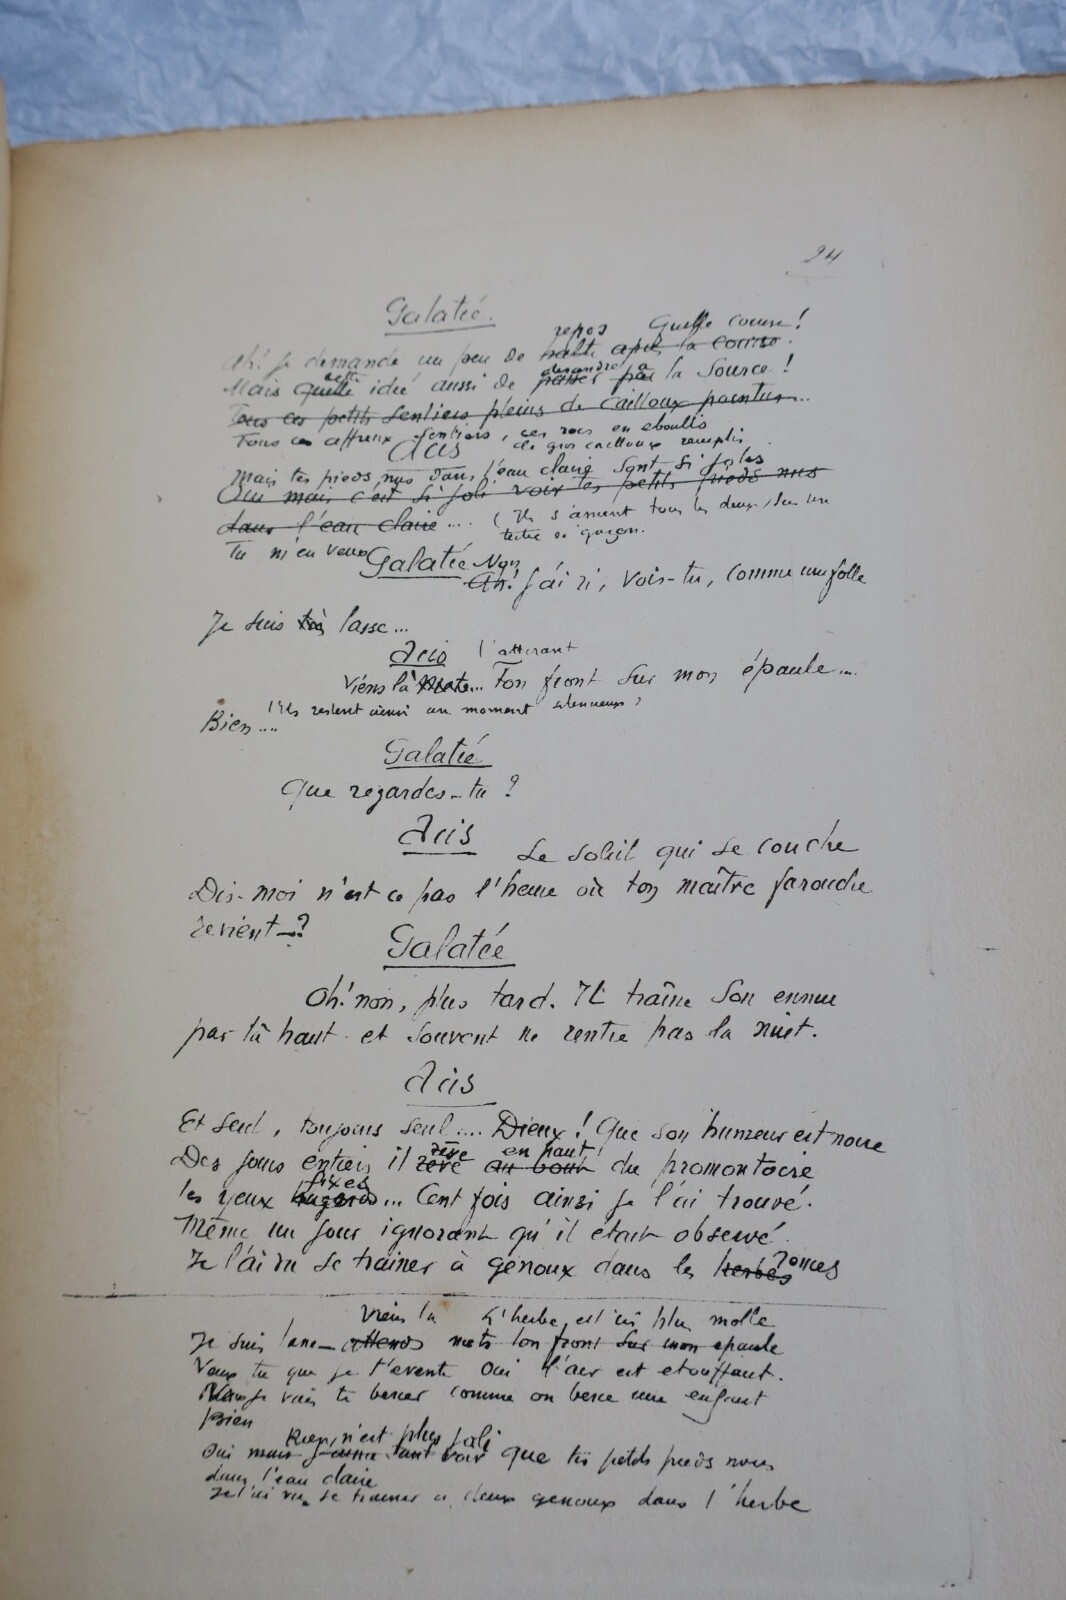 24
Galatée.
repos Quelle course!
Ah! je demande un peu de halte après la course.
cette descendre à
Mais quelle idée aussi de passer par la Source!
Tous ces petits sentiers pleins de cailloux pointus...
Tous ces affreux sentiers, ces rocs en éboulis
Acis de gros cailloux remplis
Mais tes pieds nus dans l'eau claire sont si jolis
Oui mais c'est si joli voir tes petits pieds nus
dans l'eau claire .... (Ils s'assient tous les deux, sur un
tertre de gazon.
Tu m'en veux
Galatée Non
Ah! J'ai ri, vois-tu, comme une folle
Je suis très lasse...
Acis l'attirant
Viens là ... Ton front sur mon épaule...
(Ils restent ainsi un moment silencieux)
Bien ....
Galatée
Que regardes-tu ?
Acis
Le soleil qui se couche
Dis-moi n'est ce pas l'heure où ton maître farouche
revient - ?
Galatée
Oh! non, plus tard. Il traîne son ennui
par là haut et souvent ne rentre pas la nuit.
Acis
Et seul, toujours seul .... Dieux! Que son humeur est noire
rêve en haut
Des jours entiers il rêve au bout du promontoire
fixes
les yeux hagards... Cent fois ainsi je l'ai trouvé.
Même un jour ignorant qu'il était observé
Je l'ai vu se traîner à genoux dans les herbes ronces
Viens là L'herbe est ici plus molle
Je suis lasse - attends mets ton front sur mon épaule
Veux tu que je t'évente Oui l'air est étouffant.
Je vais te bercer comme on berce une enfant
Bien
Rien n'est plus joli
Oui mais j'aime tant voir que tes petits pieds nus
dans l'eau claire
Je l'ai vu se traîner à deux genoux dans l'herbe